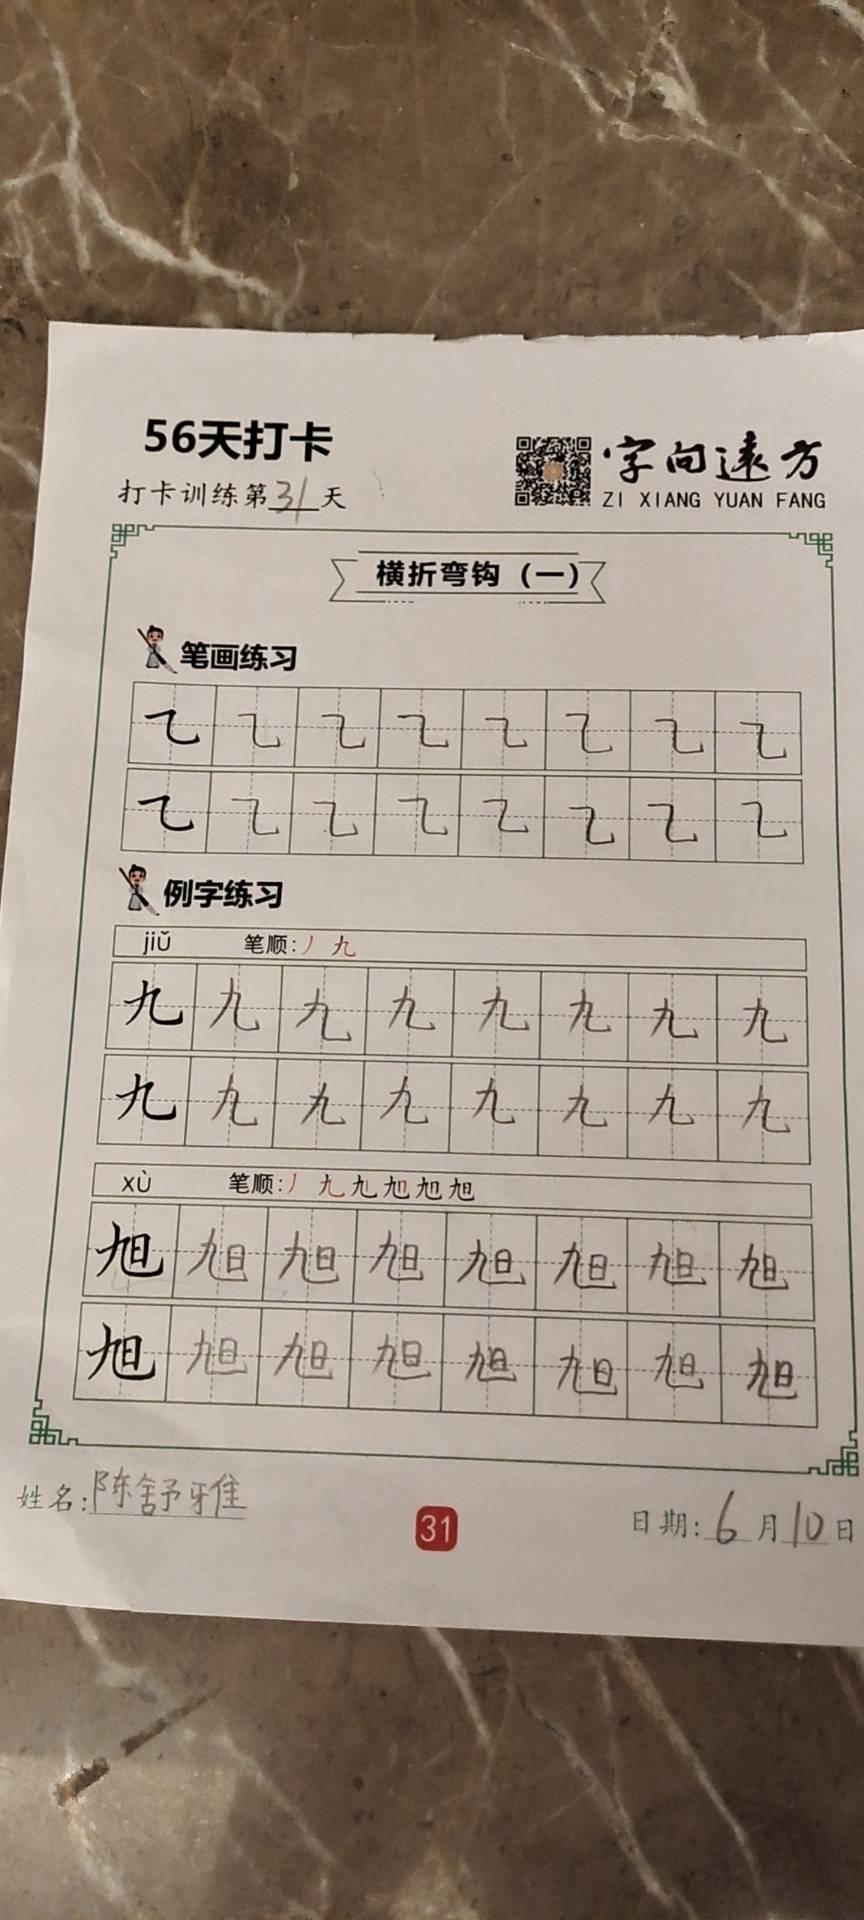 56天打卡
打卡训练第31天
字向遠方
ZI XIANG YUAN FANG
横折弯钩（一）
笔画练习
㇈ ㇈ ㇈ ㇈ ㇈ ㇈ ㇈ ㇈
㇈ ㇈ ㇈ ㇈ ㇈ ㇈ ㇈ ㇈
例字练习
jiǔ 笔顺:丿 九
九 九 九 九 九 九 九 九
九 九 九 九 九 九 九 九
xù 笔顺:丿 九 旭 旭 旭 旭
旭 旭 旭 旭 旭 旭 旭 旭
旭 旭 旭 旭 旭 旭 旭 旭
姓名:陈舒雅
31
日期:6月10日